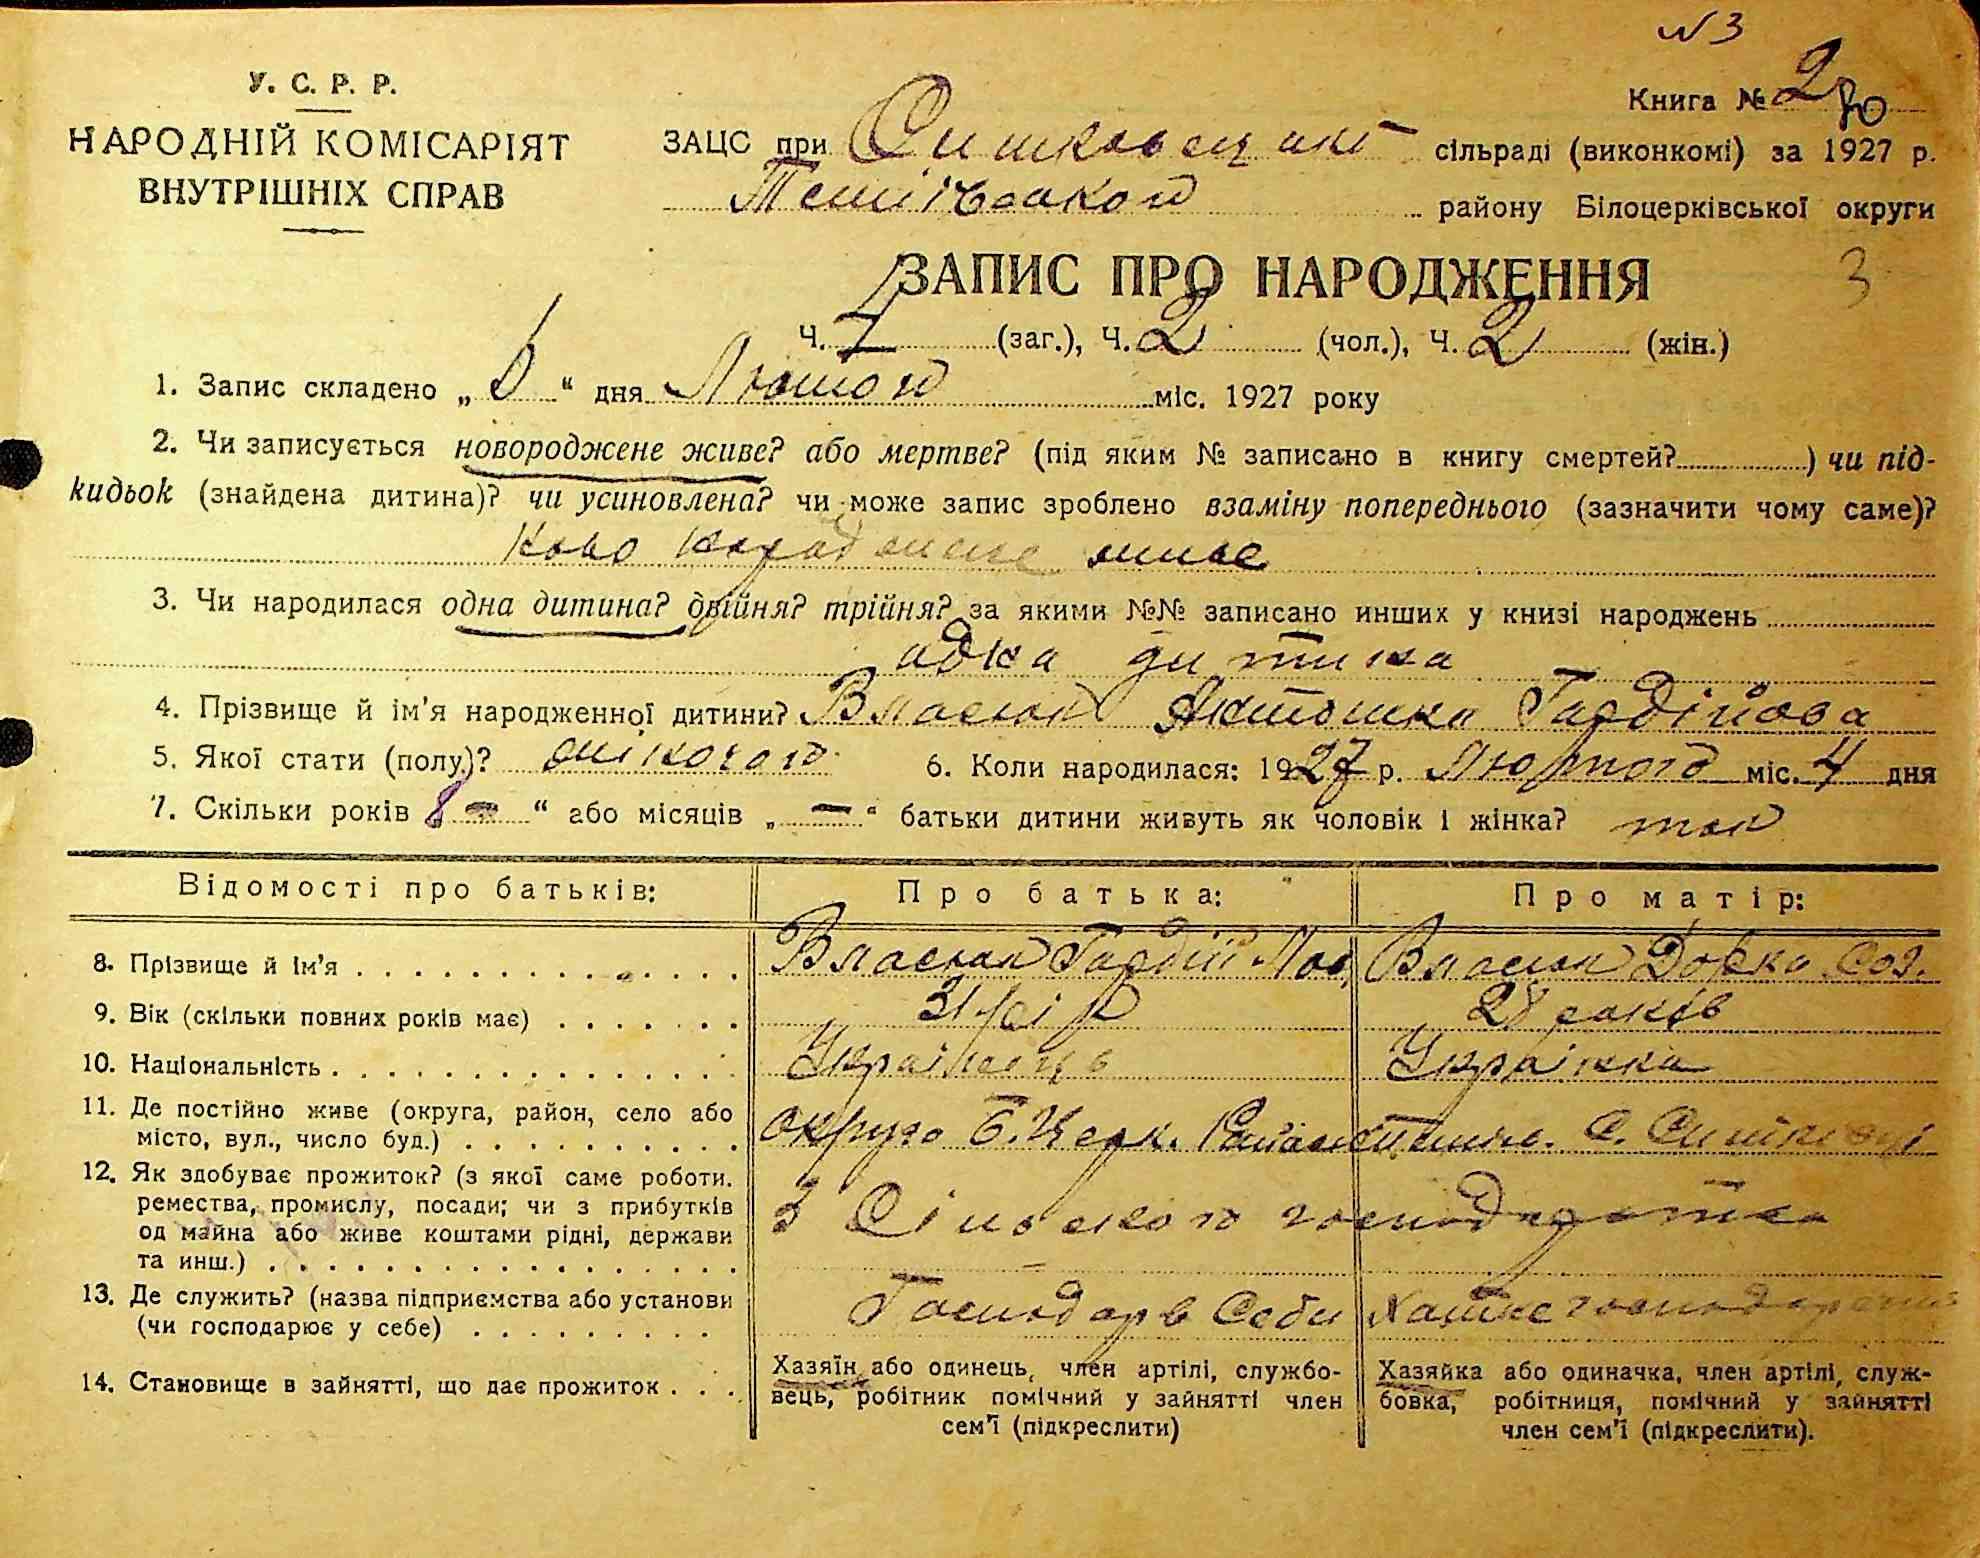 № 3
У. С. Р. Р.
Книга № 2
НАРОДНІЙ КОМІСАРІЯТ
ВНУТРІШНІХ СПРАВ
ЗАЦС при сільраді (виконкомі) за 1927 р.
району Білоцерківської округи
ЗАПИС ПРО НАРОДЖЕННЯ 3
Ч. (заг.), Ч. 2 (чол.), Ч. 2 (жін.)
1. Запис складено „ “ дня Лютого міс. 1927 року
2. Чи записується новороджене живе? або мертве? (під яким № записано в книгу смертей? ) чи під-
кидьок (знайдена дитина)? чи усиновлена? чи може запис зроблено взаміну попереднього (зазначити чому саме)?
Ново народжене живе
3. Чи народилася одна дитина? двійня? трійня? за якими №№ записано инших у книзі народжень
одна дитина
4. Прізвище й ім’я народженної дитини? Власюк Антонина Гордійова
5. Якої стати (полу)? жіночого 6. Коли народилася: 1927 р. Лютого міс. 4 дня
7. Скільки років 8 – “ або місяців „ – “ батьки дитини живуть як чоловік і жінка? так
Відомості про батьків: Про батька: Про матір:
8. Прізвище й ім’я Власюк Гордій Власюк
9. Вік (скільки повних років має) 31 28 років
10. Національність Українець Українка
11. Де постійно живе (округа, район, село або
місто, вул., число буд.) округа Б. Церк. С.
12. Як здобуває прожиток? (з якої саме роботи.
ремества, промислу, посади; чи з прибутків
од майна або живе коштами рідні, держави
та инш.) З Сільского господарства
13. Де служить? (назва підприємства або установи
(чи господарює у себе) Господарь
14. Становище в зайнятті, що дає прожиток
Хазяїн або одинець, член артілі, службо-
вець, робітник помічний у зайнятті член
сем’ї (підкреслити)
Хазяйка або одиначка, член артілі, служ-
бовка, робітниця, помічний у зайнятті
член сем’ї (підкреслити).